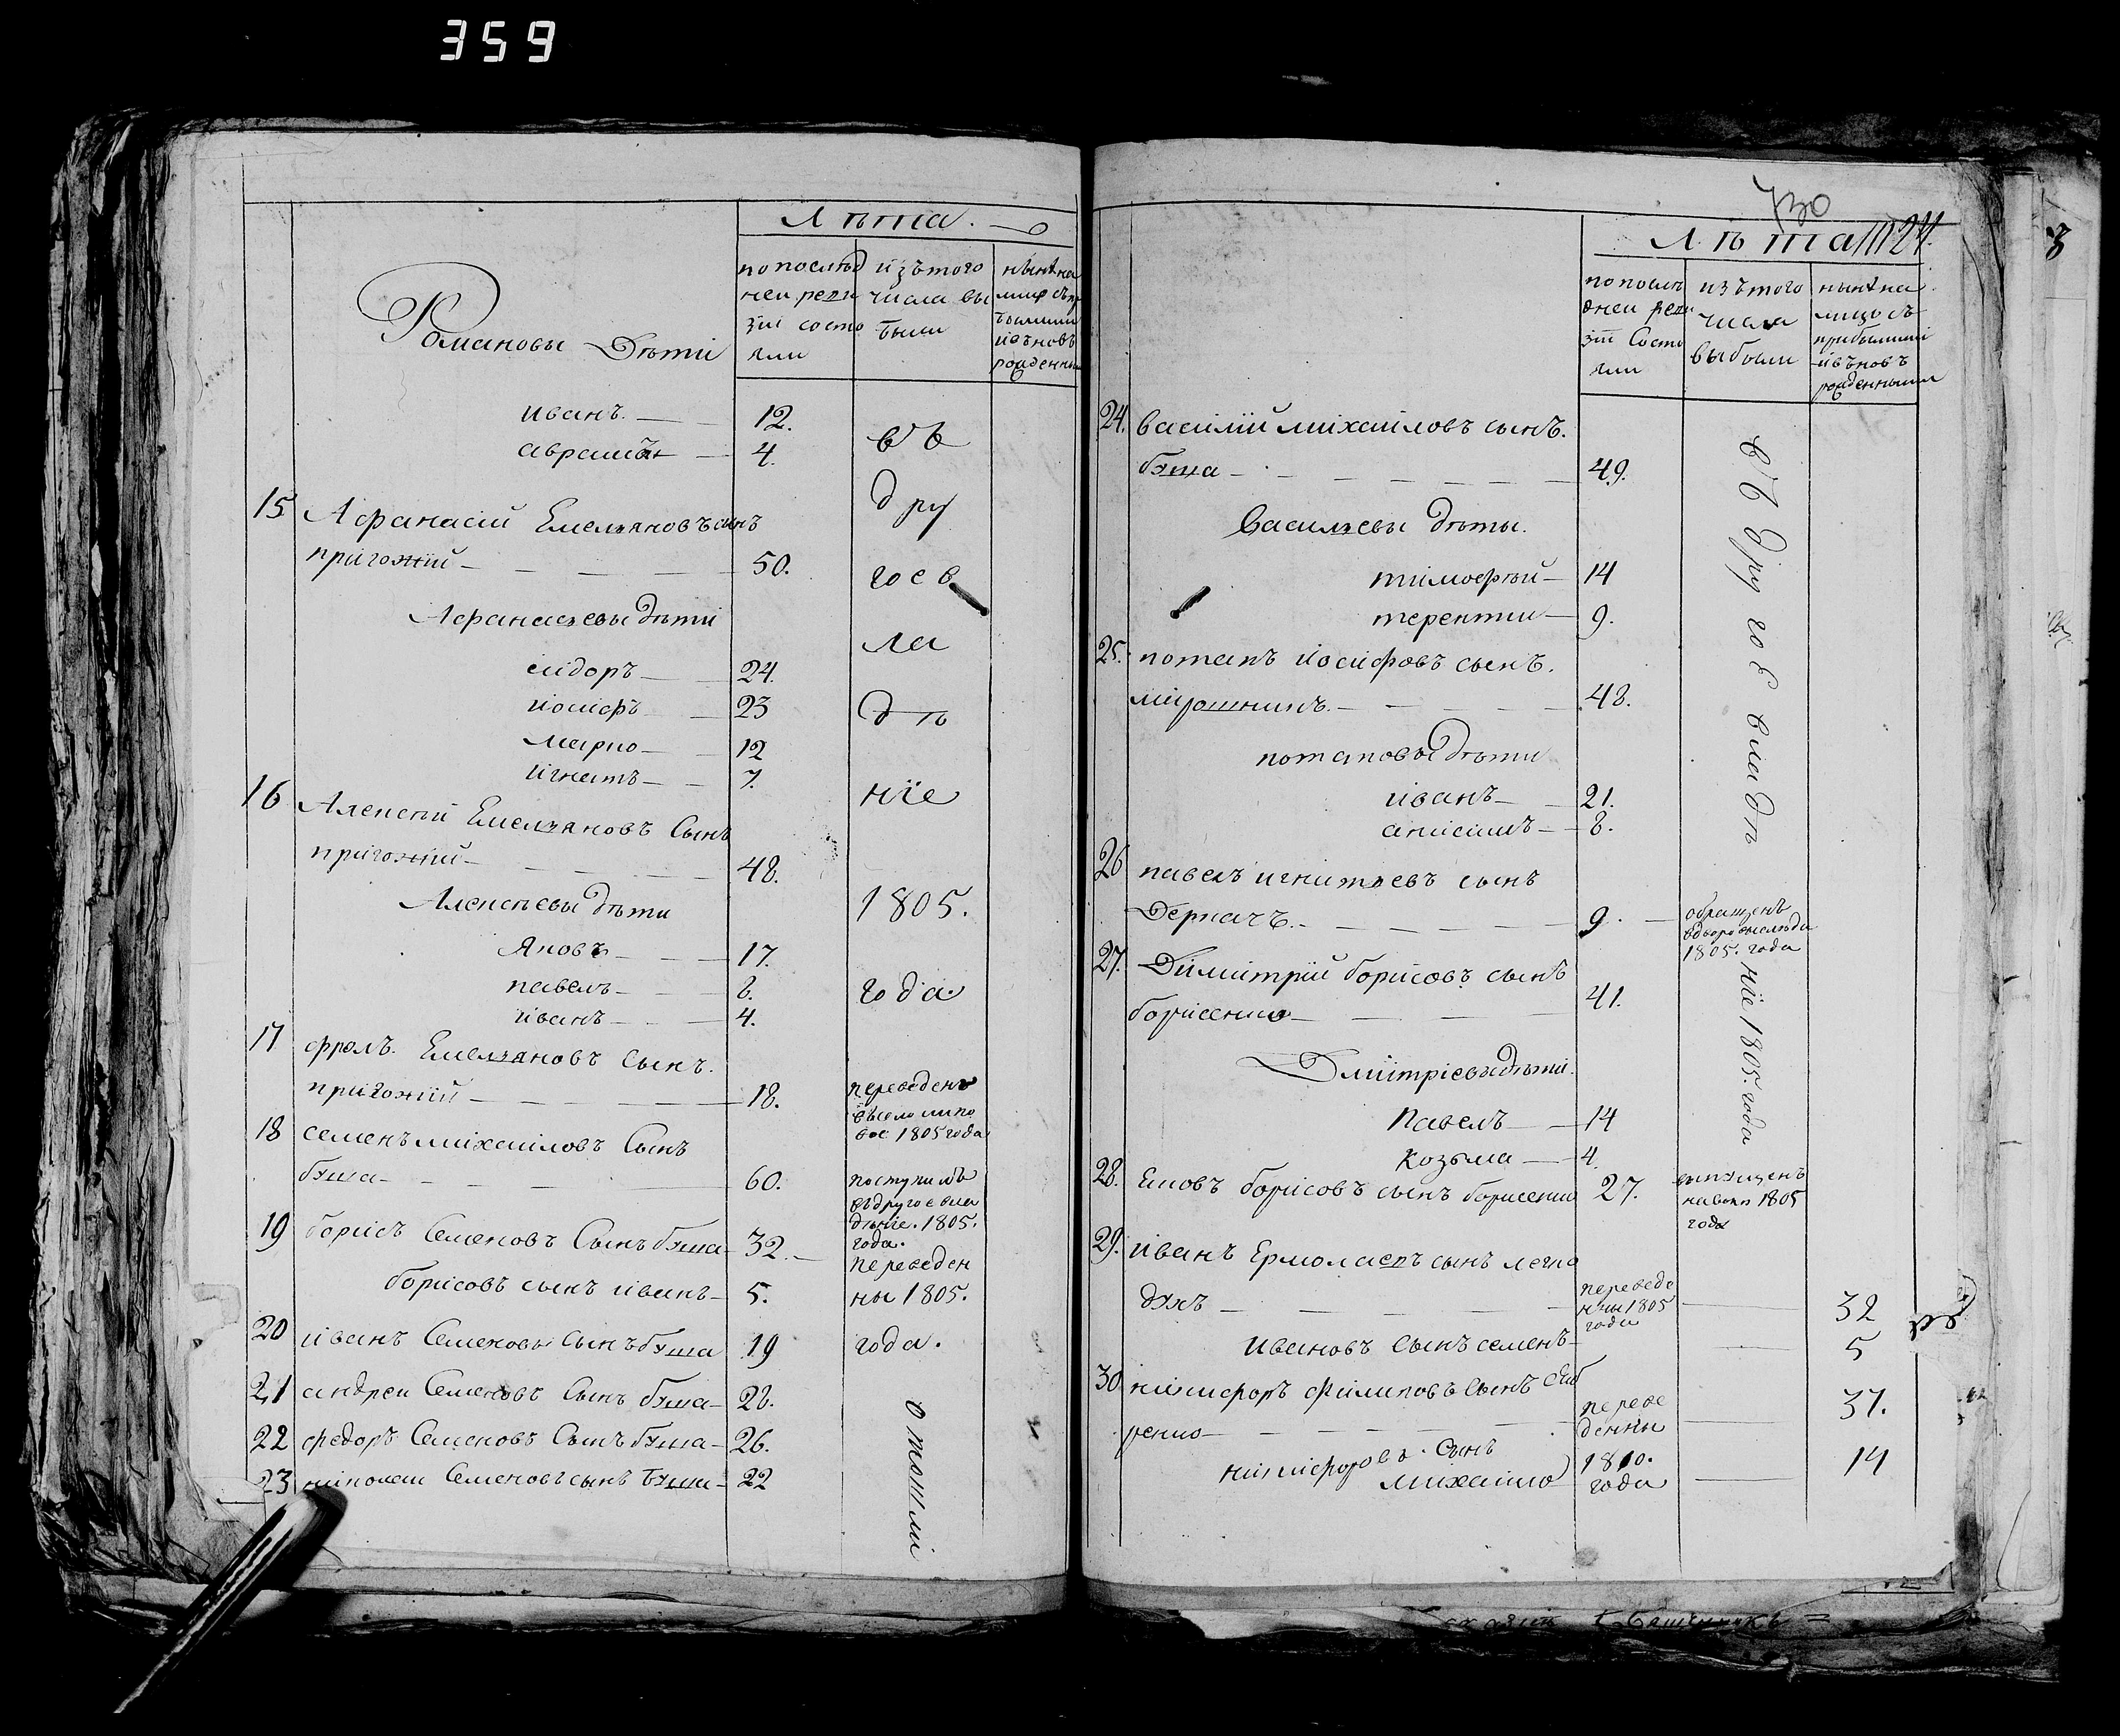 359
Лѣта.
по послѣд
ней реви
зіи состо
яли
изътого
числа вы
были
нынѣ на
лицо съпр
бывшими
ивъновъ
рожденными
Романовы Дѣти
иванъ 12.
аврамъ 4.
въ
дру
гое в
ла
дѣ
ніе
1805.
года.
15 Афанасій Емельяновъ сынъ
пригожій 50.
Афанасьевы дѣти
сидоръ 24.
иосифъ 23
марко 12
игнатъ 7.
16 Алексѣй Емельяновъ Сынъ
пригожій 48.
Алексѣевы дѣти
Яковъ 17.
павелъ 8.
иванъ 4.
17 фролъ Емельяновъ Сынъ.
пригожій 18.
переведенъ
1805 года
18 семенъ михаиловъ Сынъ
бѫша 60.
поступилъ
въдругое вла
дѣніе. 1805.
года.
19 борисъ Семеновъ Сынъ бѫша 32.
борисовъ сынъ иванъ 5.
переведен
ны 1805.
года.
20 иванъ Семеновъ Сынъ бѫша 19
21 андреи Семеновъ Сынъ бѫша 28.
22 федоръ Семеновъ Сынъ бѫша 26.
23 николаи Семеновъ сынъ бѫша 22
отошли
730
Лѣта 1124.
по послѣ
дней реви
зіи Состо
яли
изътого
числа
выбыли
нынѣ на
лицо съ
прибывшими
ивъновъ
рожденными
24. Василій михаиловъ сынъ.
бѫша 49.
Васильевы дѣты.
тимофѣй 14
терентии 9.
25. потапъ иосифовъ сынъ.
мирошникъ 48.
потаповы дѣти
иванъ 21.
анисимъ 8.
въ другое владѣ
ніе 1805. года
26 павелъ игнатьевъ сынъ
Деркачъ. 9.
обращенъ
1805. года
27. Димитрій борисовъ сынъ
борисенко 41.
Дмитріевы дѣти.
Павелъ 14
Козьма 4.
28. Яковъ борисовъ сынъ борисенко 27.
выпущенъ
наволю 1805
года
29. иванъ Ермолаевъ сынъ легко
дѫхъ
переведе
нны 1805
года
32
Ивановъ Сынъ семенъ 5
30. никифоръ филиповъ Сынъ
ренко
переве
денны
1810.
года
37.
никифоровъ. Сынъ
михаило 14